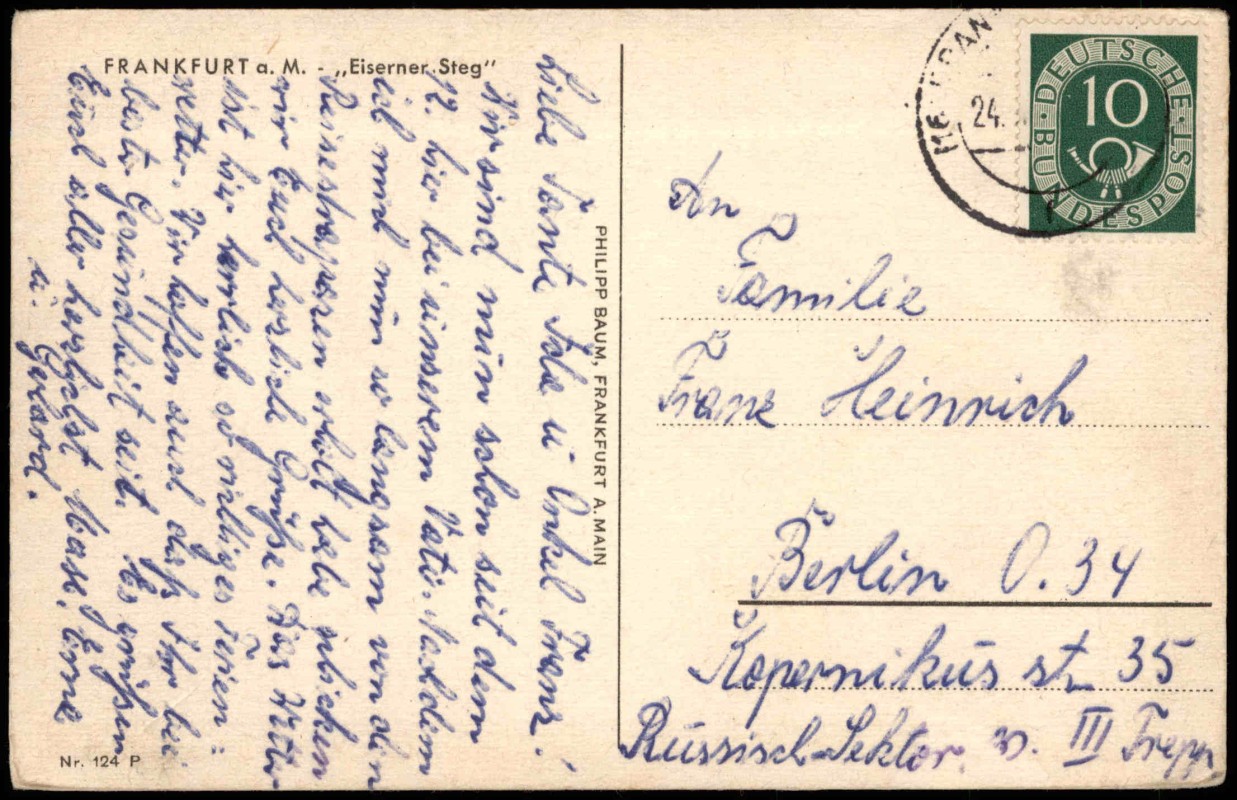 FRANKFURT a. M. - „Eiserner Steg“
Liebe Tante Ida u Onkel Franz!
Wir sind nun schon seit dem
12. hier bei unserem Vati. Nachdem
ich mich nun so langsam von den
Reisestrapazen erholt habe schicken
wir Euch herzliche Grüße. Das Wetter
ist hier herrlich so richtiges Ferien=
wetter. Wir hoffen auch daß Ihr bei
bester Gesundheit seit. Es grüßen
Euch alle herzlichst Erna
u. Gerhard.
Nr. 124 P
PHILIPP BAUM, FRANKFURT A. MAIN
24.
DEUTSCHE BUNDESPOST
10
An
Familie
Franz Heinrich
Berlin O. 34
Kopernikus st. 35
Russisch-Sektor. III Trepp